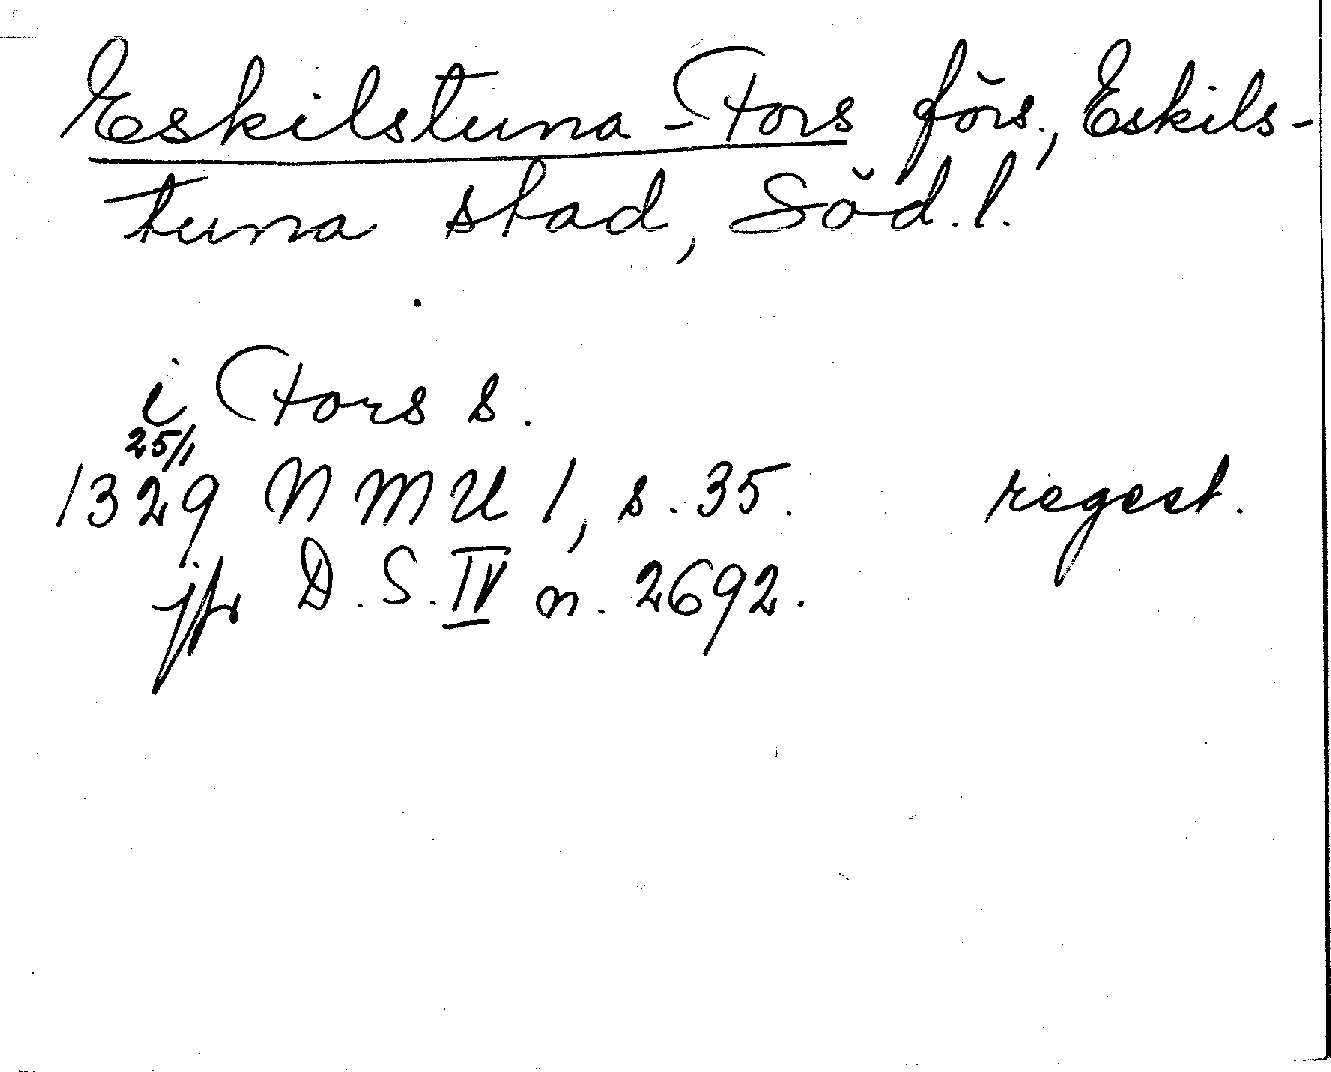 Eskilstuna-Fors förs., Eskils-
tuna stad, Söd.l.
i Fors s.
25/1
1329 NMU 1, s. 35. regest.
jfr D.S. IV n. 2692.